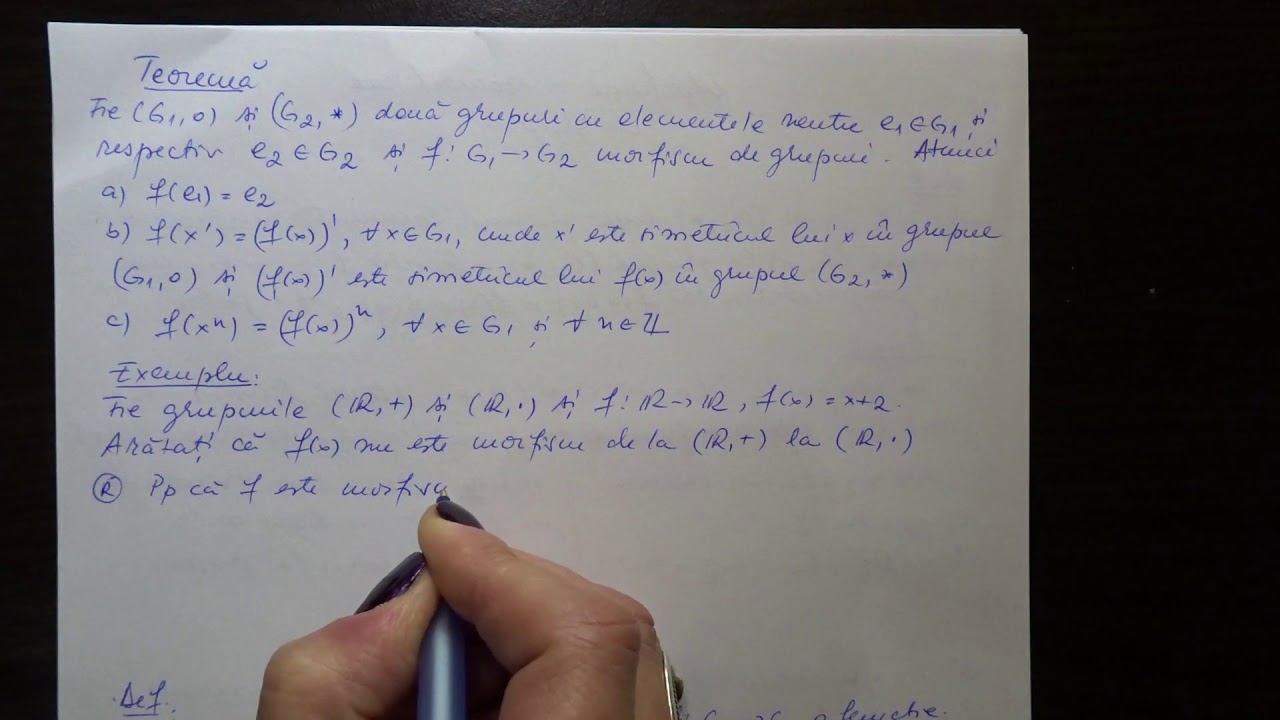 Teoremă
Fie (G1,∘) și (G2,*) două grupuri cu elementele neutre e1∈G1 și
respectiv e2∈G2 și f: G1→G2 morfism de grupuri. Atunci
a) f(e1) = e2
b) f(x') = (f(x))', ∀x∈G1, unde x' este simetricul lui x în grupul
(G1,∘) și (f(x))' este simetricul lui f(x) în grupul (G2,*)
c) f(xⁿ) = (f(x))ⁿ, ∀x∈G1 și ∀n∈ℤ
Exemplu:
Fie grupurile (ℝ,+) și (ℝ,·) și f: ℝ→ℝ, f(x) = x+2.
Arătați că f(x) nu este morfism de la (ℝ,+) la (ℝ,·)
Ⓡ Pp că f este morfism
Def.